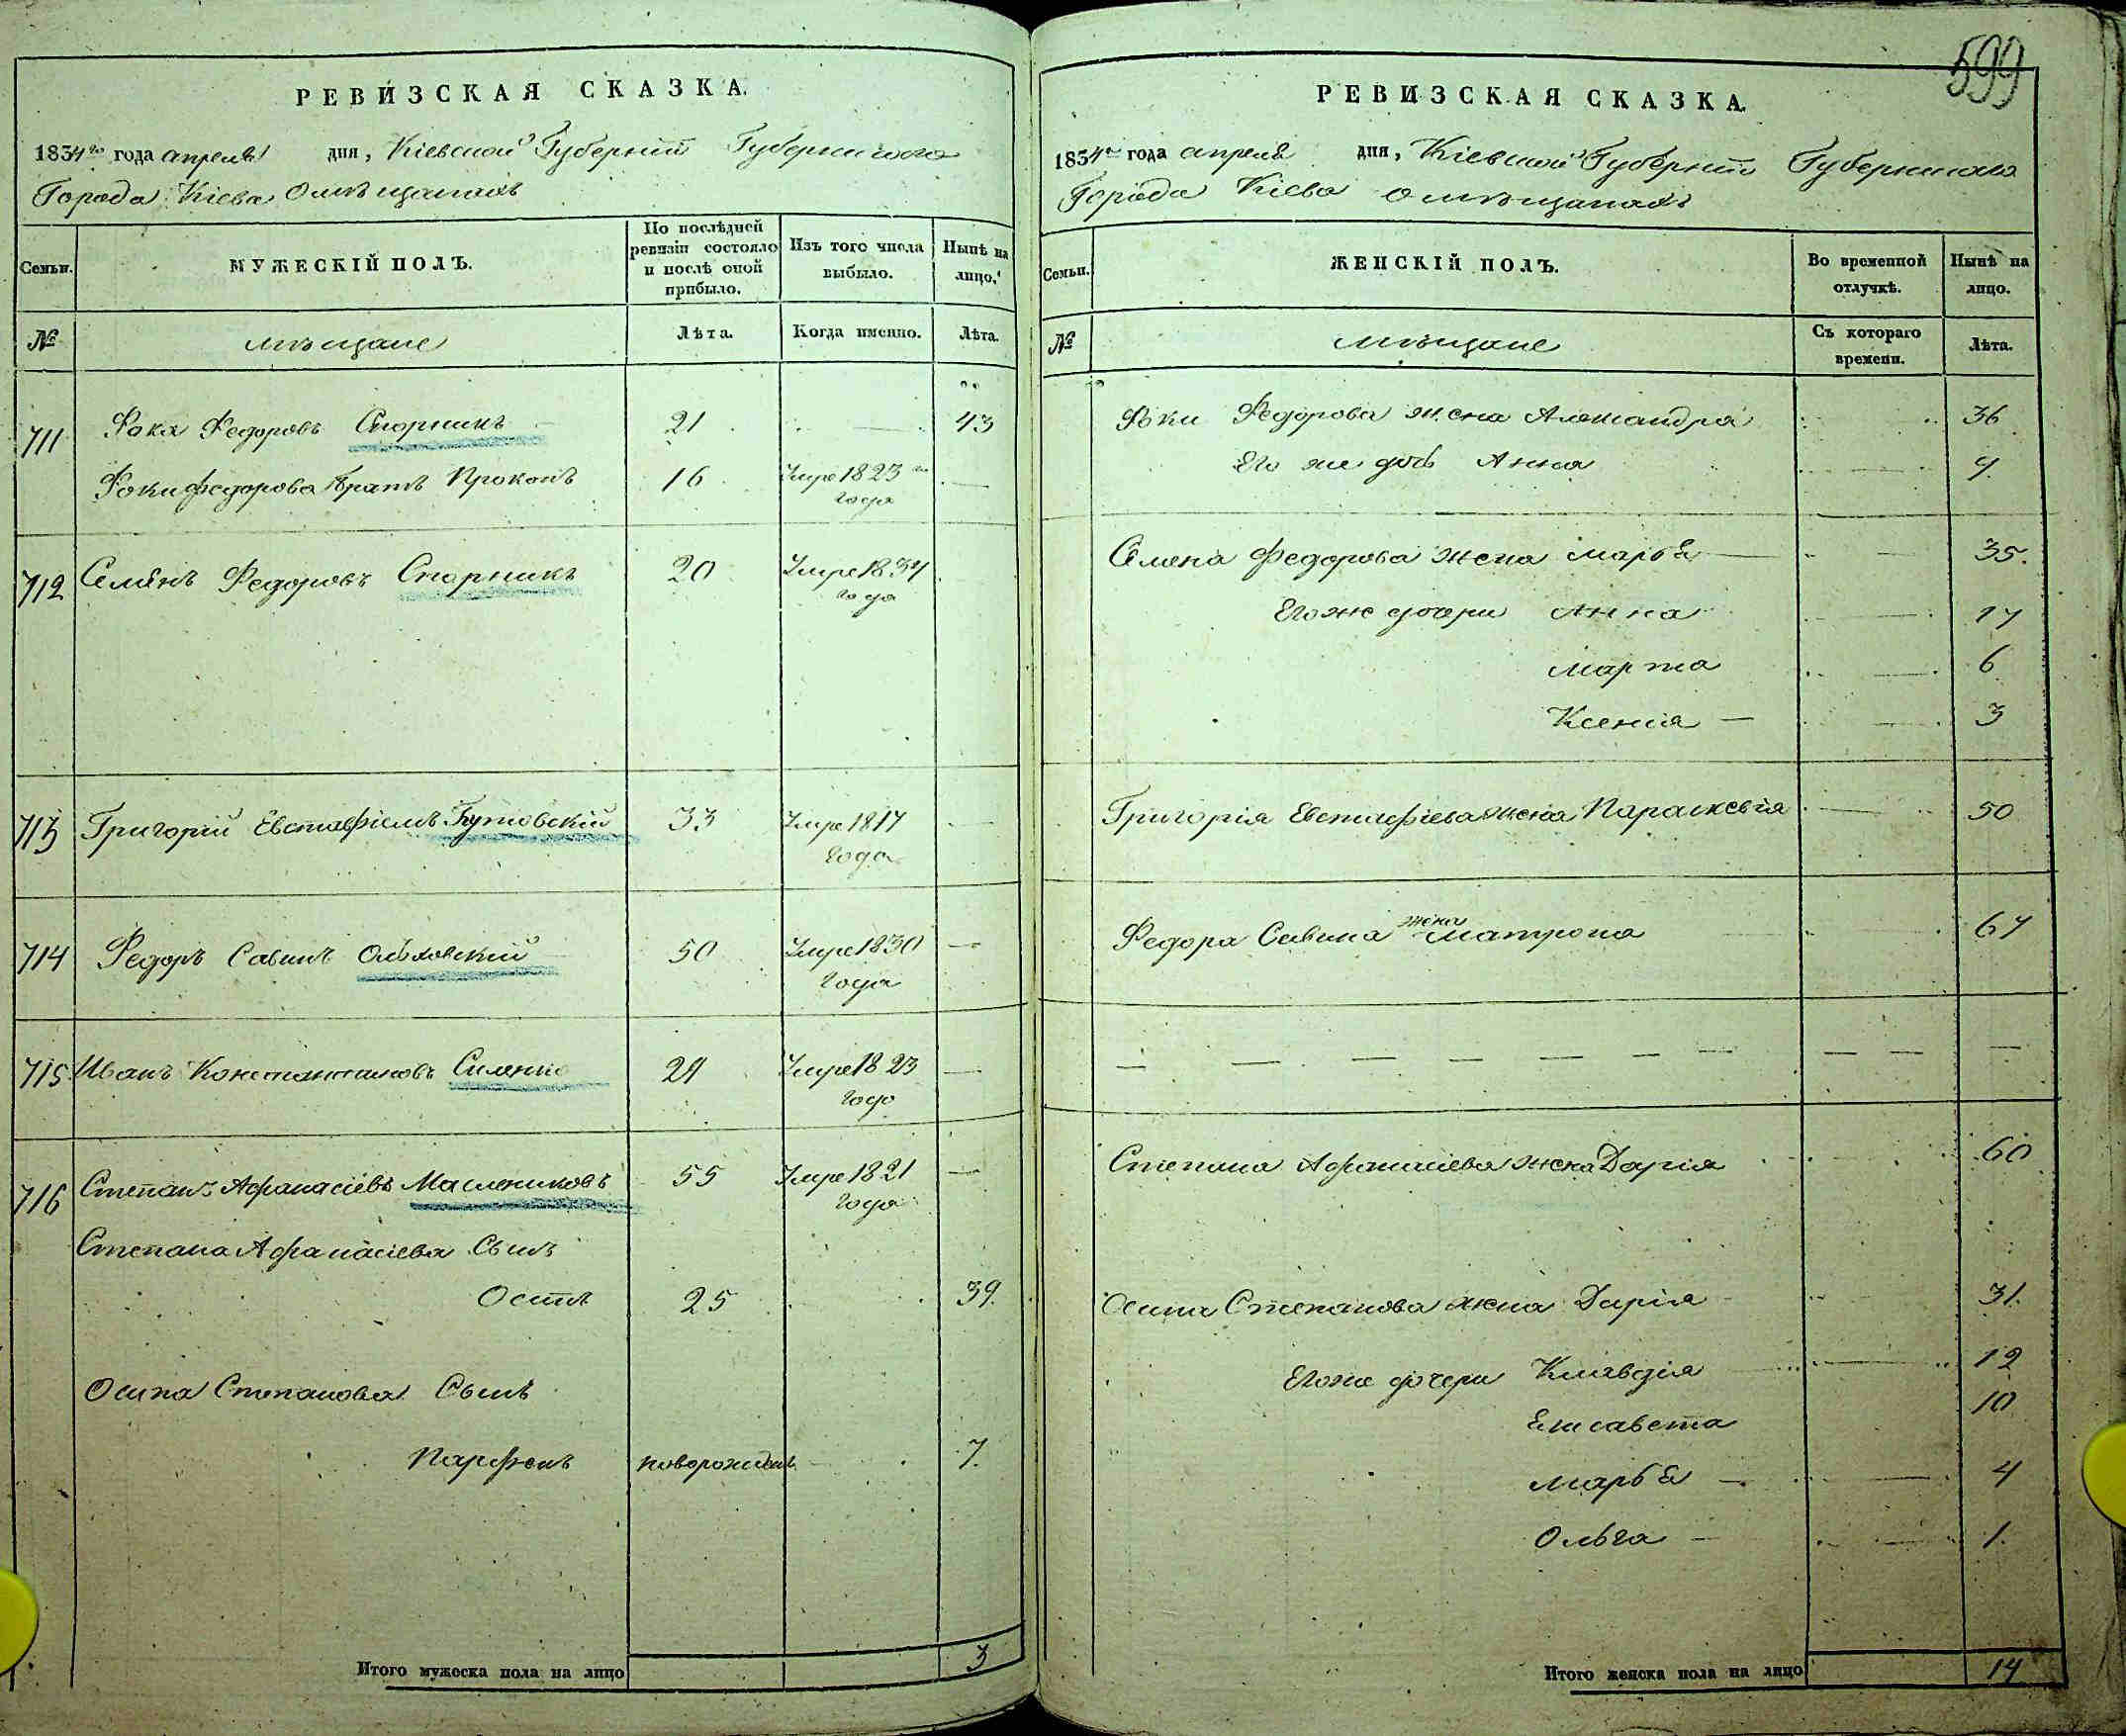 РЕВИЗСКАЯ СКАЗКА.
1834го года апреля дня, Кіевской Губерніи Губернского
Города Кіева о мѣщанахъ
Семьи. МУЖЕСКІЙ ПОЛЪ. По послѣдней ревизіи состояло и послѣ оной прибыло. Изъ того числа выбыло. Нынѣ на лицо.
№ мѣщане Лѣта. Когда именно. Лѣта.
711 Фока Федоровъ Спорникъ 21 43
Фоки Федорова братъ Прокопъ 16 Умре 1823го
года
712 Семёнъ Федоровъ Спорникъ 20 Умре 1834
года
713 Григорій Евстафіевъ Бутовскій 33 Умре 1817
года
714 Федоръ Савинъ Ольховскій 50 Умре 1830
года
715 Иванъ Константиновъ 29 Умре 1823
года
716 Степанъ Афанасіевъ Маслениковъ 55 Умре 1821
года
Степана Афанасіева Сынъ
Осипъ 25 39
Осипа Степанова Сынъ
Парфенъ новорожден. 7
Итого мужеска пола на лицо 3
599
РЕВИЗСКАЯ СКАЗКА.
1834го года апреля дня, Кіевской Губерніи Губернскаго
Города Кіева о мѣщанахъ
Семьи. ЖЕНСКІЙ ПОЛЪ. Во временной отлучкѣ. Нынѣ на лицо.
№ мѣщане Съ котораго времени. Лѣта.
Фоки Федорова жена Александра 36
Его же дочь Анна 9
Семена Федорова жена Марья 35.
Его же дочери Анна 17
Марта 6
Ксенія 3
Григорія Евстафіева жена Параскевія 50
Федора Савина жена Матрона 67
Степана Афанасіева жена Дарія 60
Осипа Степанова жена Дарія 31.
Его же дочери Клавдія 12
Елисавета 10
Марья 4
Ольга 1.
Итого женска пола на лицо 14